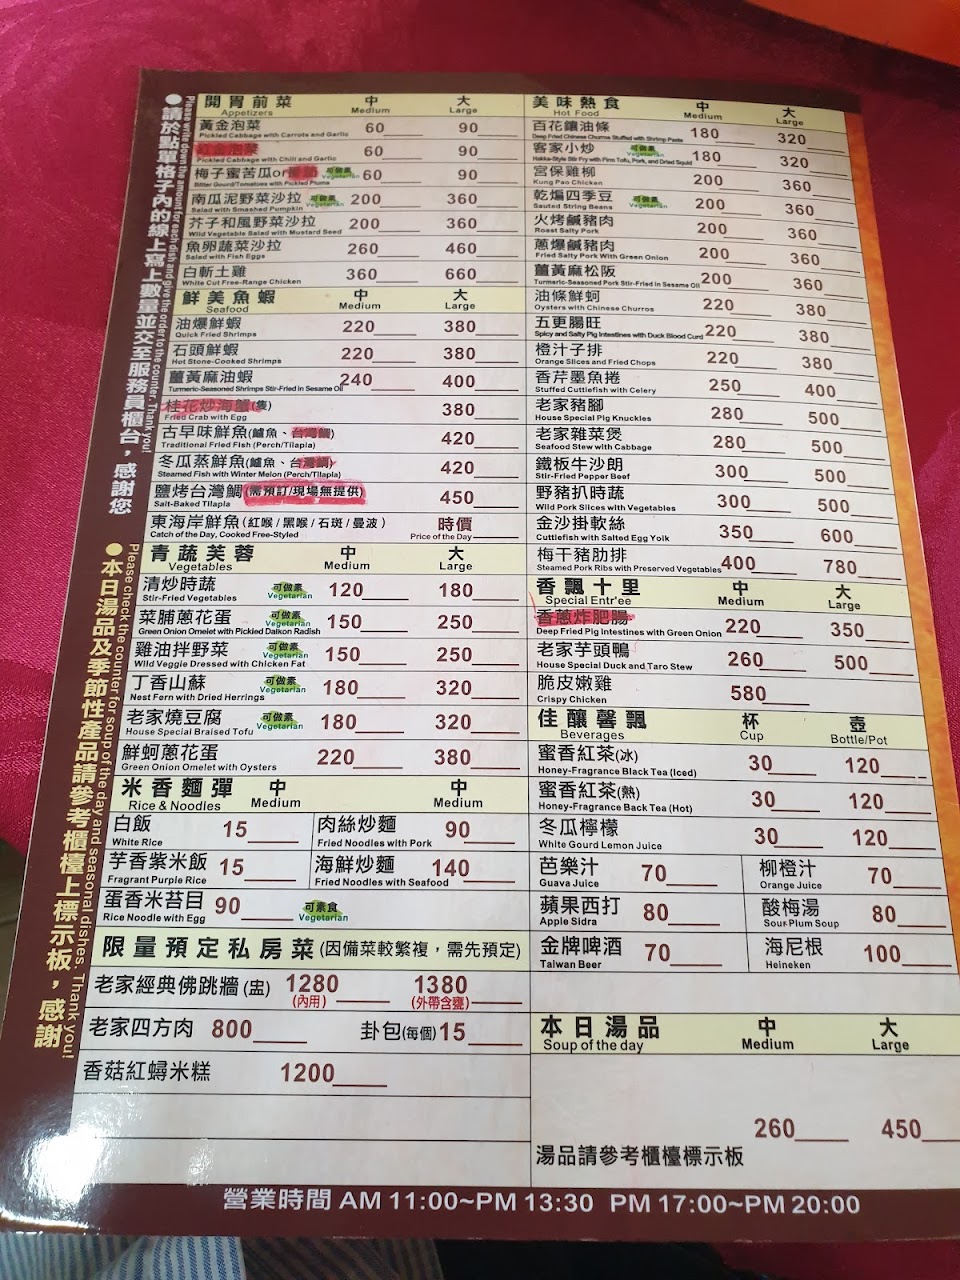 ●請於點單格子內的線上寫上數量並交至服務員櫃台，感謝您
Please write down the amount for each dish and give the order to the counter. Thank you!
●本日湯品及季節性產品請參考櫃檯上標示板，感謝
Please check the counter for soup of the day and seasonal dishes. Thank you!
開胃前菜 中 大
Appetizers Medium Large
黃金泡菜 60 90
Pickled Cabbage with Carrots and Garlic
泡菜 60 90
Pickled Cabbage with Chili and Garlic
梅子蜜苦瓜or 可做素 Vegetarian 60 90
Bitter Gourd/Tomatoes with Pickled Plums
南瓜泥野菜沙拉 可做素 Vegetarian 200 360
Salad with Smashed Pumpkin
芥子和風野菜沙拉 200 360
Wild Vegetable Salad with Mustard Seed
魚卵蔬菜沙拉 260 460
Salad with Fish Eggs
白斬土雞 360 660
White Cut Free-Range Chicken
鮮美魚蝦 中 大
Seafood Medium Large
油爆鮮蝦 220 380
Quick Fried Shrimps
石頭鮮蝦 220 380
Hot Stone-Cooked Shrimps
薑黃麻油蝦 240 400
Turmeric-Seasoned Shrimps Stir-Fried in Sesame Oil
桂花炒海蟹(隻) 380
Fried Crab with Egg
古早味鮮魚(鱸魚、台灣鯛) 420
Traditional Fried Fish (Perch/Tilapia)
冬瓜蒸鮮魚(鱸魚、台灣鯛) 420
Steamed Fish with Winter Melon (Perch/Tilapia)
鹽烤台灣鯛(需預訂/現場無提供) 450
Salt-Baked Tilapia
東海岸鮮魚(紅喉/黑喉/石斑/曼波) 時價
Catch of the Day, Cooked Free-Styled Price of the Day
青蔬芙蓉 中 大
Vegetables Medium Large
清炒時蔬 可做素 Vegetarian 120 180
Stir-Fried Vegetables
菜脯蔥花蛋 可做素 Vegetarian 150 250
Green Onion Omelet with Pickled Daikon Radish
雞油拌野菜 可做素 Vegetarian 150 250
Wild Veggie Dressed with Chicken Fat
丁香山蘇 可做素 Vegetarian 180 320
Nest Fern with Dried Herrings
老家燒豆腐 可做素 Vegetarian 180 320
House Special Braised Tofu
鮮蚵蔥花蛋 220 380
Green Onion Omelet with Oysters
米香麵彈 中 中
Rice & Noodles Medium Medium
白飯 15 肉絲炒麵 90
White Rice Fried Noodles with Pork
芋香紫米飯 15 海鮮炒麵 140
Fragrant Purple Rice Fried Noodles with Seafood
蛋香米苔目 90 可素食 Vegetarian
Rice Noodle with Egg
限量預定私房菜(因備菜較繁複，需先預定)
老家經典佛跳牆(盅) 1280 1380
(內用) (外帶含甕)
老家四方肉 800 卦包(每個)15
香菇紅蟳米糕 1200
美味熱食 中 大
Hot Food Medium Large
百花鑲油條 180 320
Deep Fried Chinese Churros Stuffed with Shrimp Paste
客家小炒 可做素 Vegetarian 180 320
Hakka-Style Stir Fry with Firm Tofu, Pork, and Dried Squid
宮保雞柳 200 360
Kung Pao Chicken
乾煸四季豆 可做素 Vegetarian 200 360
Sauted String Beans
火烤鹹豬肉 200 360
Roast Salty Pork
蔥爆鹹豬肉 200 360
Fried Salty Pork With Green Onion
薑黃麻松阪 200 360
Turmeric-Seasoned Pork Stir-Fried in Sesame Oil
油條鮮蚵 220 380
Oysters with Chinese Churros
五更腸旺 220 380
Spicy and Salty Pig Intestines with Duck Blood Curd
橙汁子排 220 380
Orange Slices and Fried Chops
香芹墨魚捲 250 400
Stuffed Cuttlefish with Celery
老家豬腳 280 500
House Special Pig Knuckles
老家雜菜煲 280 500
Seafood Stew with Cabbage
鐵板牛沙朗 300 500
Stir-Fired Pepper Beef
野豬扒時蔬 300 500
Wild Pork Slices with Vegetables
金沙掛軟絲 350 600
Cuttlefish with Salted Egg Yolk
梅干豬肋排 400 780
Steamed Pork Ribs with Preserved Vegetables
香飄十里 中 大
Special Entr'ee Medium Large
香蔥炸肥腸 220 350
Deep Fried Pig Intestines with Green Onion
老家芋頭鴨 260 500
House Special Duck and Taro Stew
脆皮嫩雞 580
Crispy Chicken
佳釀馨飄 杯 壺
Beverages Cup Bottle/Pot
蜜香紅茶(冰) 30 120
Honey-Fragrance Black Tea (Iced)
蜜香紅茶(熱) 30 120
Honey-Fragrance Back Tea (Hot)
冬瓜檸檬 30 120
White Gourd Lemon Juice
芭樂汁 70 柳橙汁 70
Guava Juice Orange Juice
蘋果西打 80 酸梅湯 80
Apple Sidra Sour Plum Soup
金牌啤酒 70 海尼根 100
Taiwan Beer Heineken
本日湯品 中 大
Soup of the day Medium Large
260 450
湯品請參考櫃檯標示板
營業時間 AM 11:00~PM 13:30 PM 17:00~PM 20:00